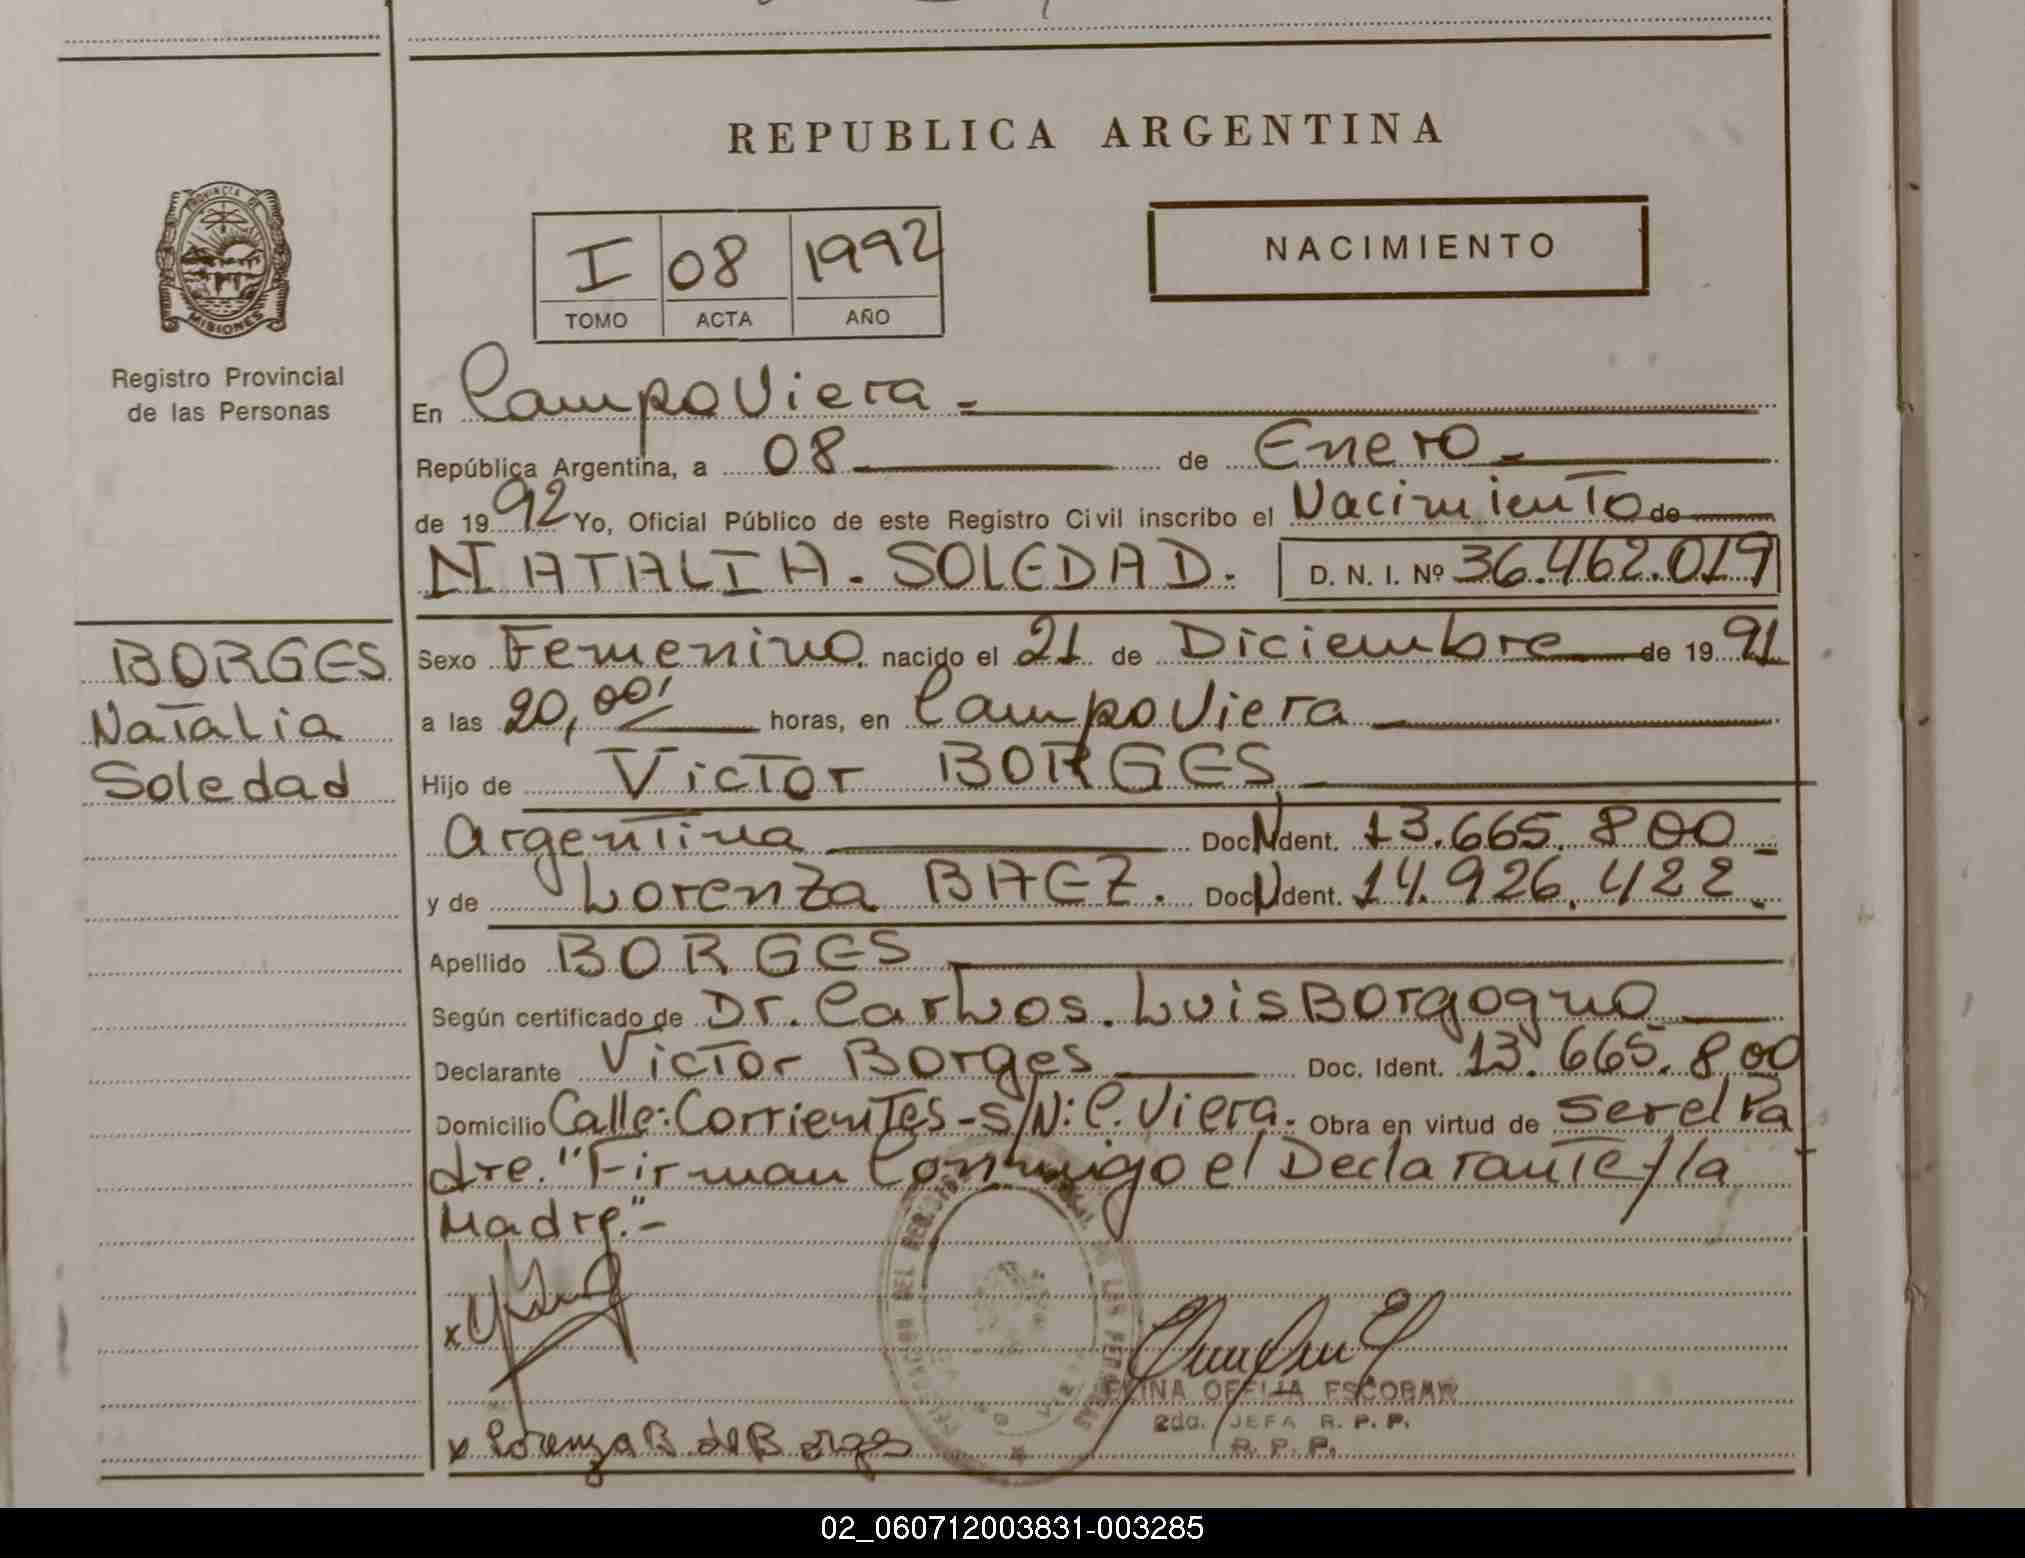 REPUBLICA ARGENTINA
PROVINCIA DE
MISIONES
Registro Provincial
de las Personas
I 08 1992
TOMO ACTA AÑO
NACIMIENTO
En Campo Viera -
República Argentina, a 08 de Enero -
de 1992 Yo, Oficial Público de este Registro Civil inscribo el Nacimiento de
NATALIA. SOLEDAD. D. N. I. Nº 36.462.019
BORGES
Natalia
Soledad
Sexo Femenino. nacido el 21 de Diciembre de 1991
a las 20,00' horas, en Campo Viera
Hijo de Victor BORGES
Argentina Doc N Ident. 13.665.800 -
y de Lorenza BAEZ. Doc N Ident. 14.926.422 -
Apellido BORGES
Según certificado de Dr. Carlos. Luis Borgogno
Declarante Victor Borges Doc. Ident. 13.665.800
Domicilio Calle: Corrientes - s/N: C. Viera. Obra en virtud de ser el Pa
dre. "Firman Conmigo el Declarante y la
Madre." -
x
x Lorenza B de Borges
OFELIA ESCOBAR
2da. JEFA R. P. P.
R. P. P.
02_060712003831-003285